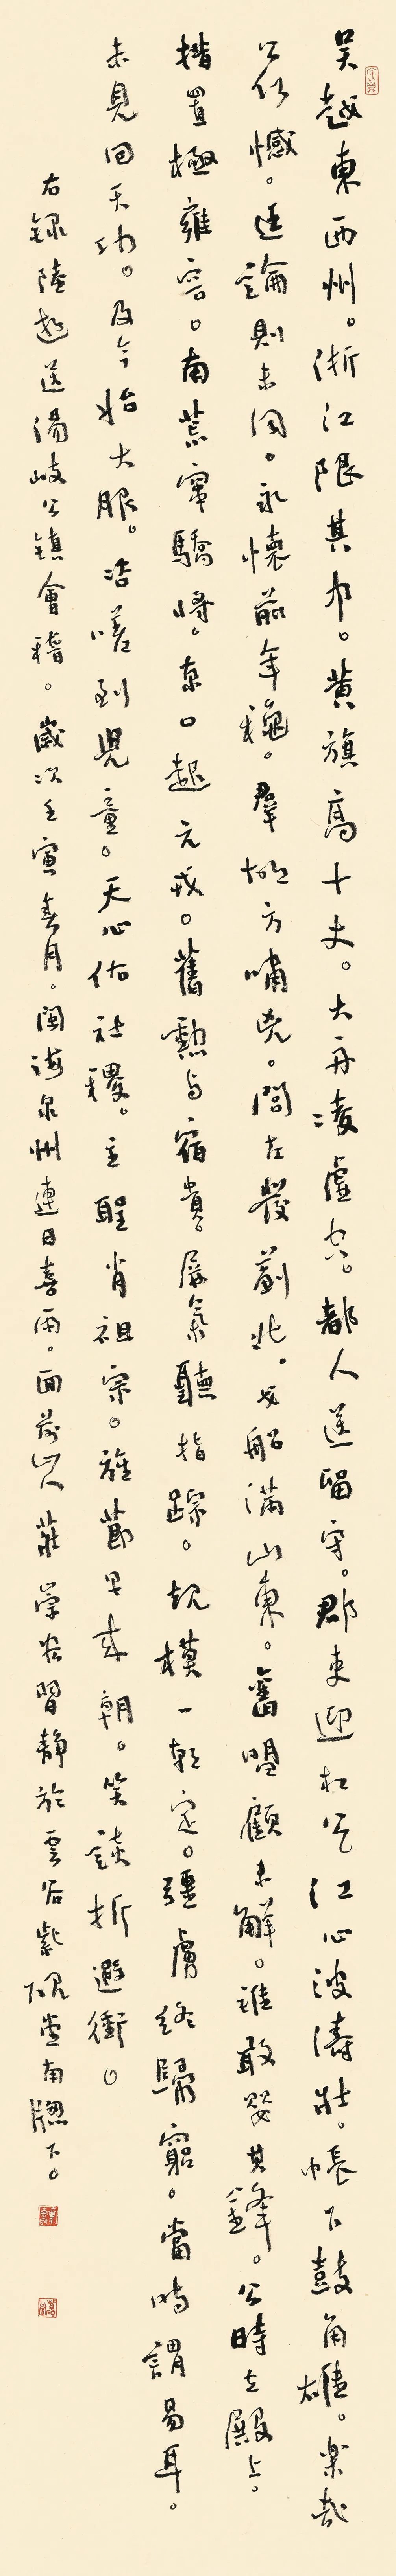 吳越東西州。浙江限其中。黃旗高十丈。大舟凌虛空。都人送留守。郡吏迎相公。江心波濤壯。帳下鼓角雄。樂哉
公何憾。遠論則未同。永懷前年穐。群胡方嘯兇。閭左發薊北。戈船滿山東。舊盟顧未解。誰敢嬰其鋒。公時在殿上。
措置極雍容。南荒窜驕將。京口起元戎。舊勲與宿貴。屏氣聽指蹤。規模一朝定。彊虜終歸窮。當時謂易耳。
未見回天功。及今始大服。咨嗟到児童。天心佑社稷。主聖肖祖宗。旌節早来朝。笑談折遐衝。
右録陸游送湯岐公鎮會稽。歲次壬寅春月。閩海泉州連日喜雨。面前山人莊榮谷習靜於雲谷紫硯堂南牕下。